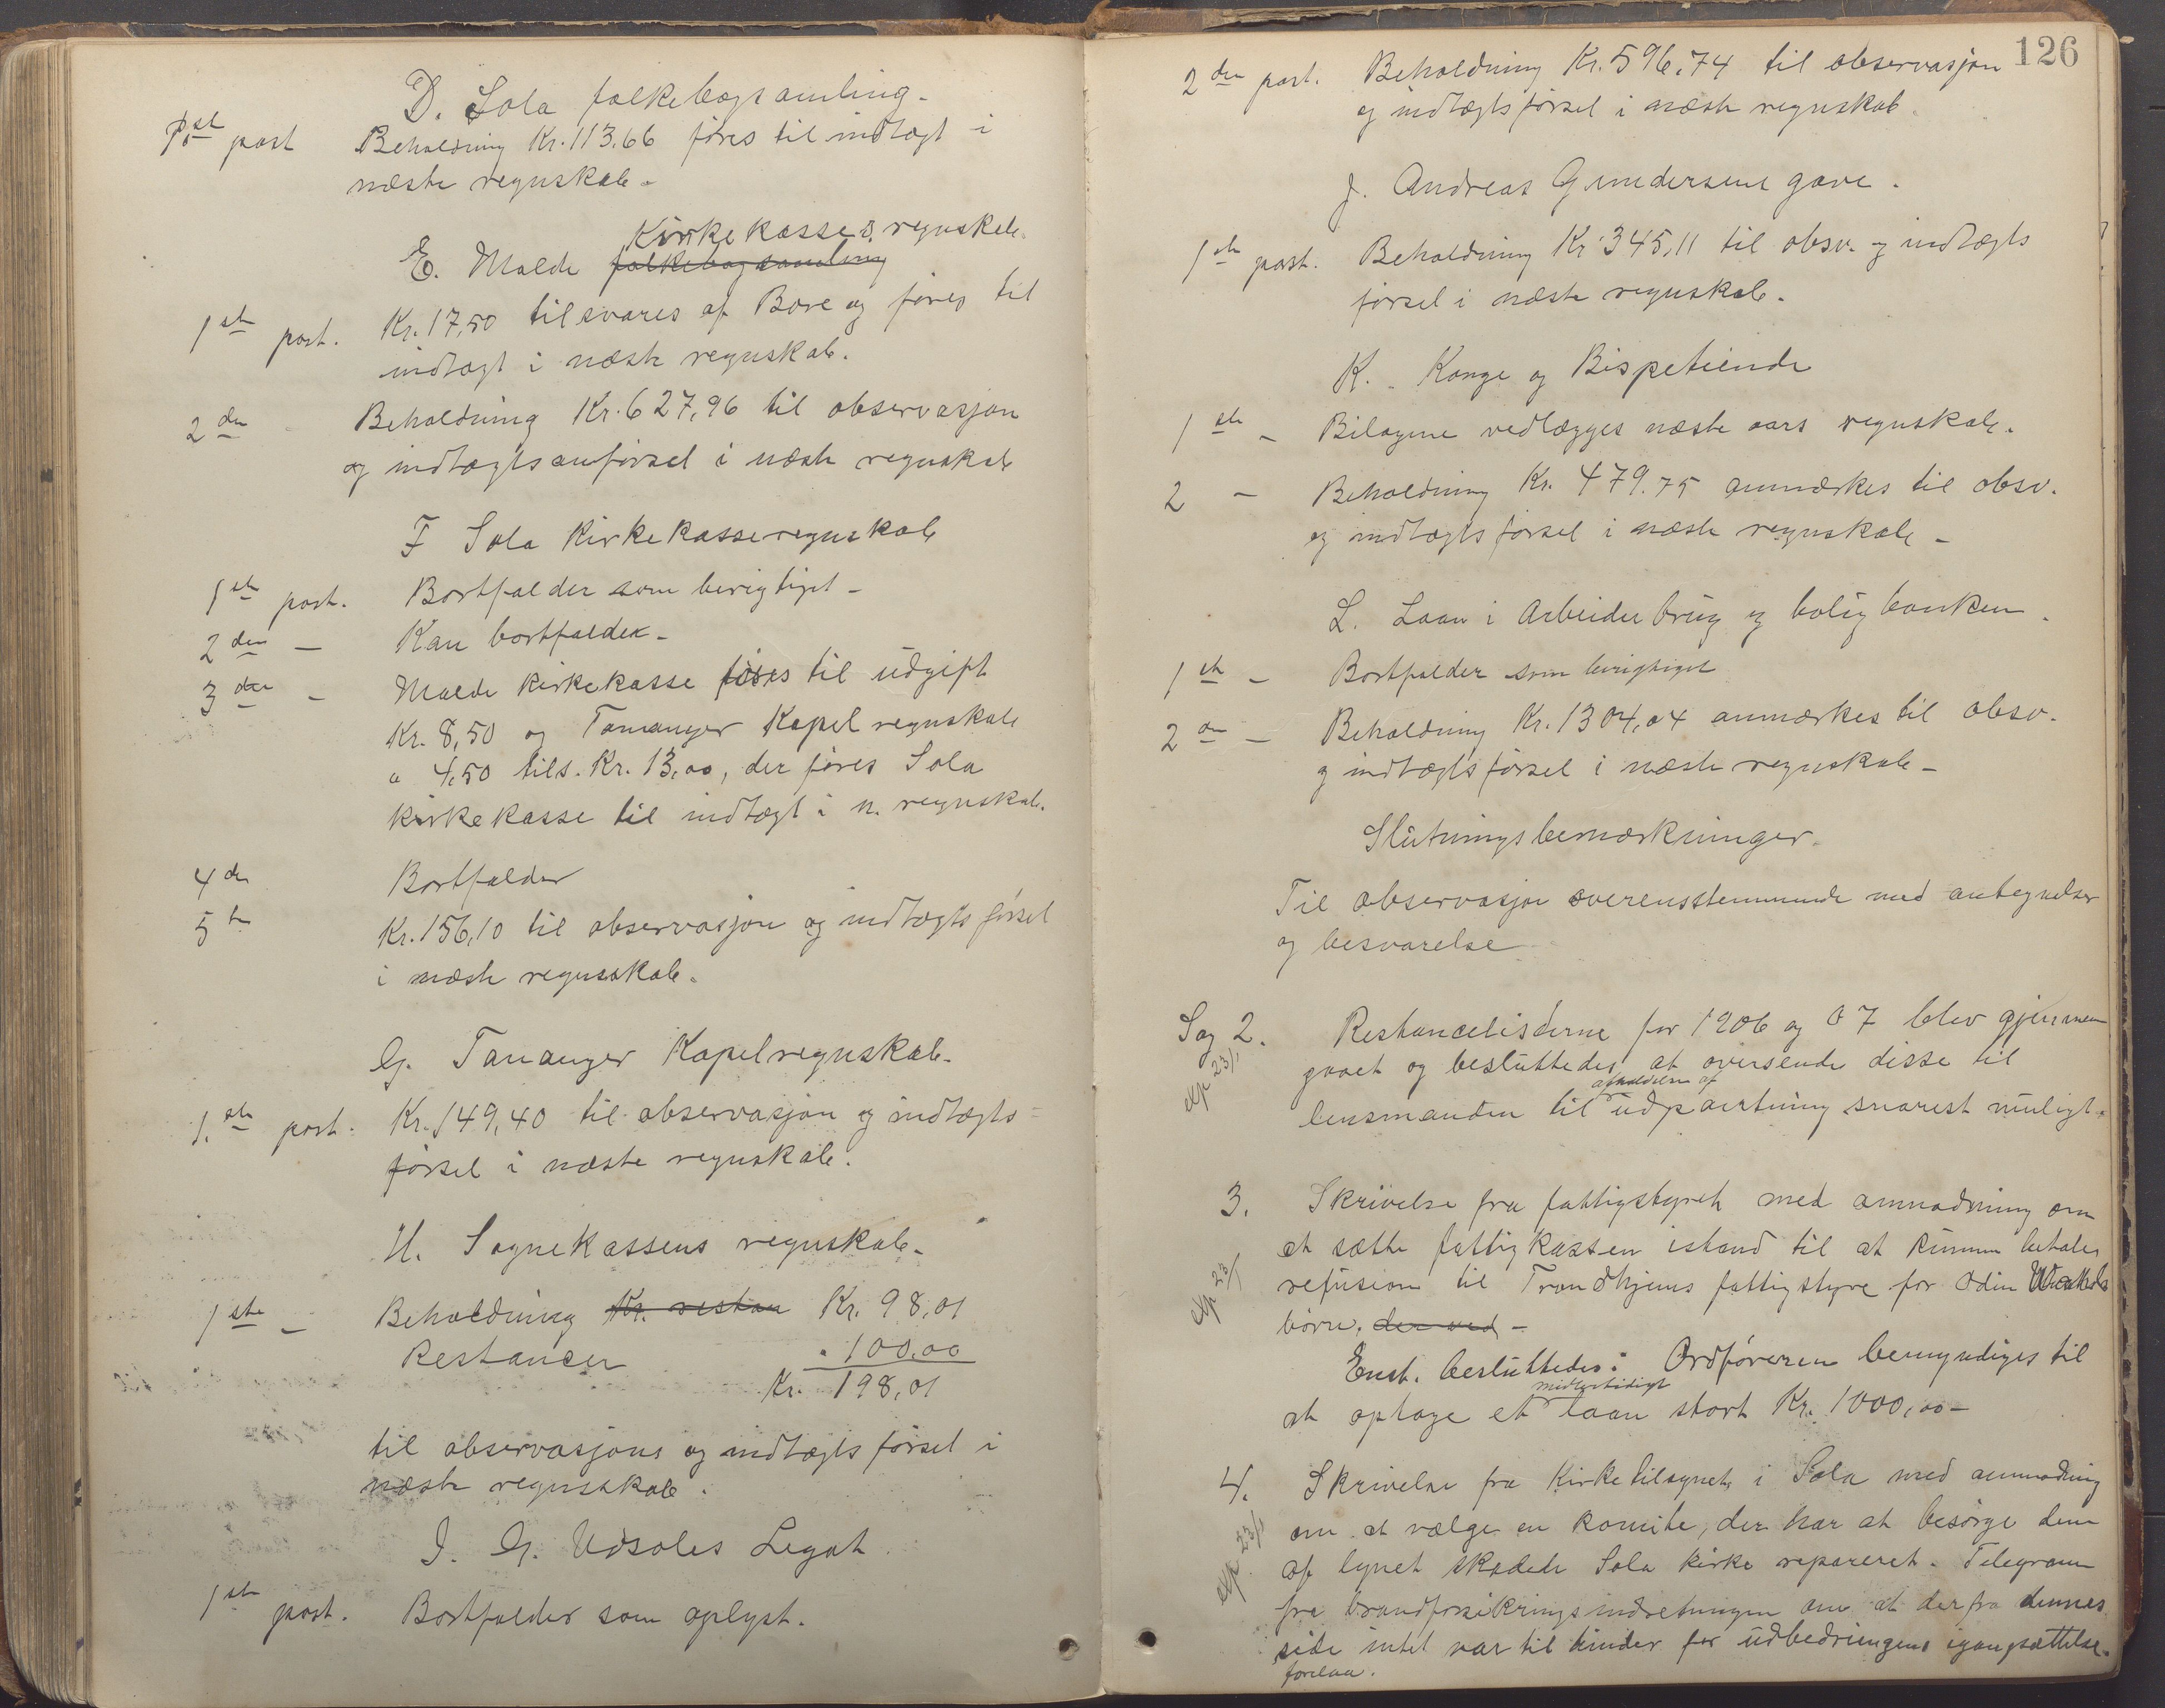 D. Sola folkebogsamling.
1ste post Beholdning Kr. 113.66 føres til indtægt i
næste regnskab.
Kirkekasseregnskab.
E. Malde folkebogsamling
1ste post. Kr. 17,50 tilsvares af Bore og føres til
indtægt i næste regnskab.
2den - Beholdning Kr. 627,96 til observasjon
og indtægtsanførsel i næste regnskab
F Sola Kirkekasseregnskab
1ste post. Bortfalder som berigtiget -
2den - Kan bortfalder -
3die - Malde kirkekasse føres til udgift
Kr. 8,50 og Tananger Kapel regnskab
" 4,50 tils. Kr. 13,00, der føres Sola
kirkekasse til indtægt i n. regnskab.
4de Bortfalder
5te Kr. 156,10 til observasjon og indtægtsførsel
i næste regnskab.
G. Tananger Kapelregnskab.
1.ste post. Kr. 149,40 til observasjon og indtægts=
førsel i næste regnskab.
H. Sognekassens regnskab.
1ste - Beholdning Kr. restan Kr. 98,01
Restancer " 100,00
Kr. 198,01
til observasjons og indtægtsførsel i
næste regnskab.
I. G. Udsolas Legat.
1ste post. Bortfalder som oplyst.
126
2den post. Beholdning Kr. 596,74 til observasjon
og indtægtsførsel i næste regnskab.
J. Andreas Gundersens gave.
1ste post. Beholdning Kr 345,11 til obsv. og indtægts
førsel i næste regnskab.
K. Konge og Bispetiende
1ste - Bilagene vedlægges næste aars regnskab.
2 - Beholdning Kr. 479.75 anmærkes til obsv.
og indtægtsførsel i næste regnskab -
L. Laan i Arbeiderbrug og boligbanken.
1ste - Bortfalder som berigtiget
2den - Beholdning Kr. 1304,04 anmærkes til obsv.
og indtægtsførsel i næste regnskab -
Slutningsbemærkninger.
Til observasjon overensstemmende med antegnelser
og besvarelse
Sag 2. Restancelisterne for 1906 og 07 blev gjennem
exp 23/1 gaaet og besluttedes at oversende disse til
afholdelse af
lensmanden til udpantning snarest muligt.
3. Skrivelse fra fattigstyret med anmodning om
at sætte fattigkassen istand til at kunne betale
exp 23/1 refusion til Trondhjems fattigstyre for Odin
børn. der ved -
Enst. besluttedes: Ordføreren bemyndiges til
midlertidigt
at optage et laan stort Kr. 1000,00 -
4. Skrivelse fra Kirketilsynet i Sola med anmodning
om at vælge en komite, der har at besørge den
exp 23/1 af lynet skadede Sola kirke repareret. Telegram
fra brandforsikringsindretningen om at der fra dennes
side intet var til hinder for udbedringens igangsættelse
forelaa.